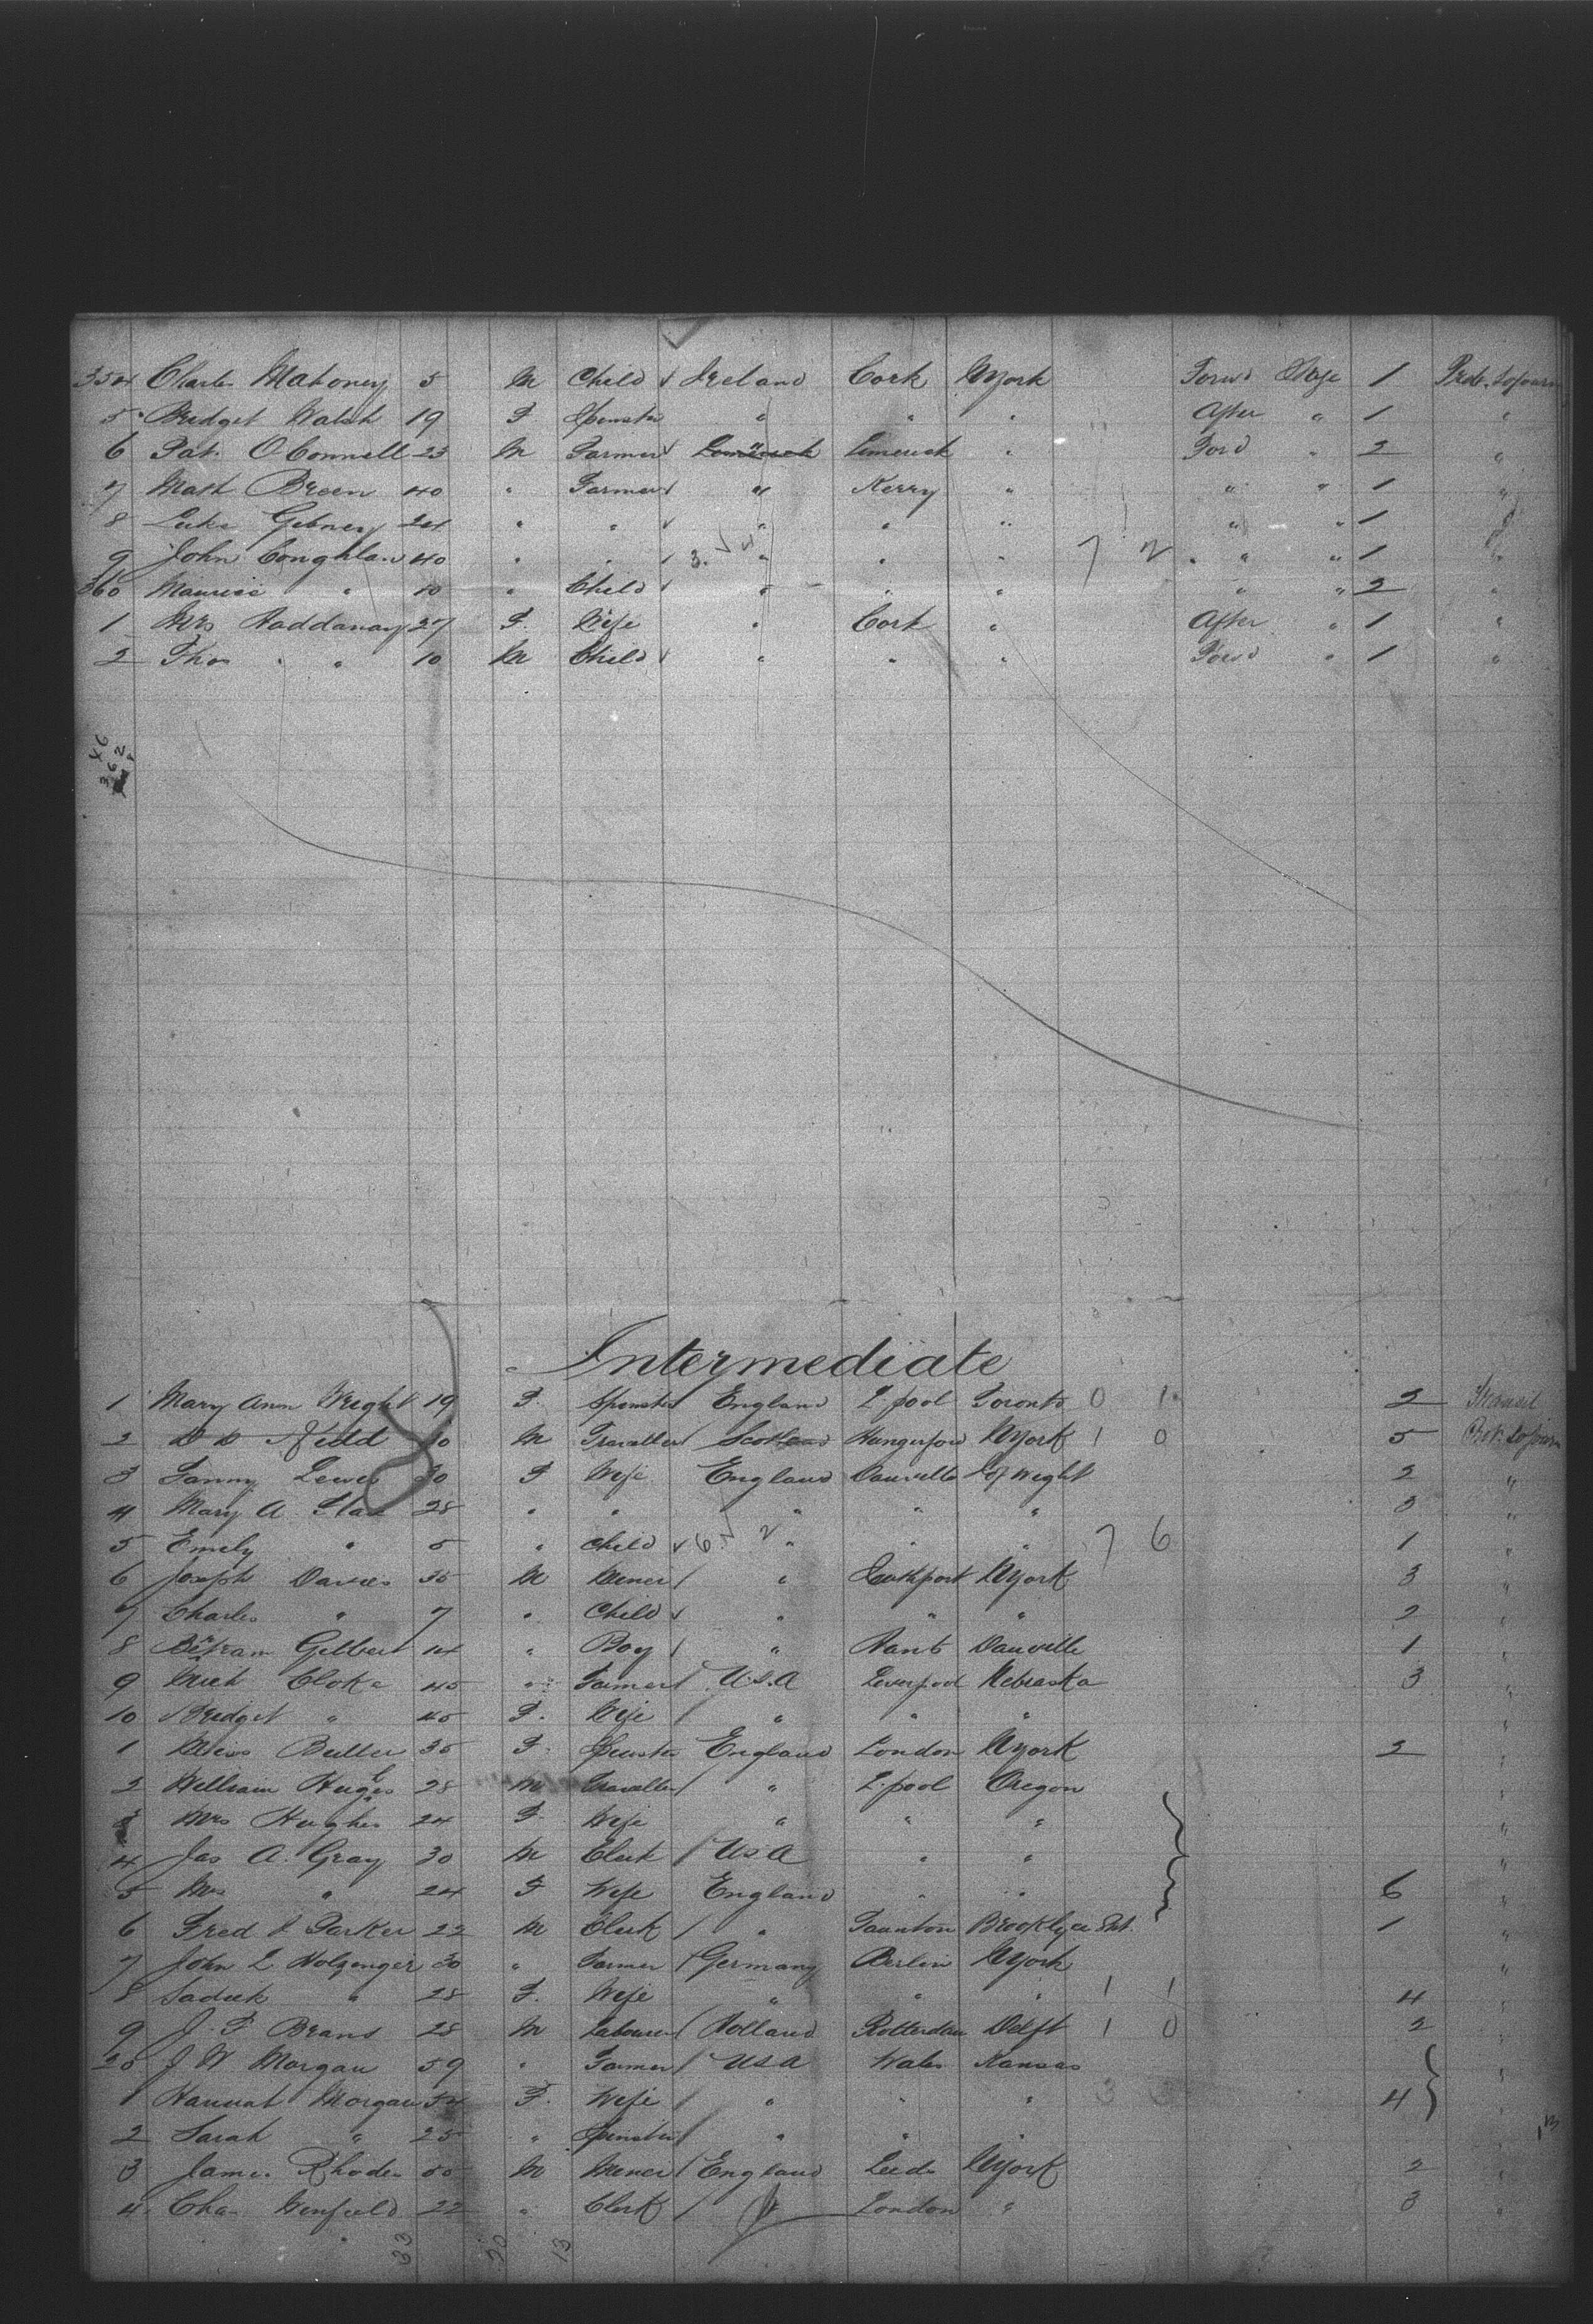 354 Charles Mahoney 5 M Child Ireland Cork NYork Forwd Stge 1 Prot. Sojourn
5 Bridget Walsh 19 F Spinster " " " After " 1 "
6 Pat. OConnell 23 M Farmer Limerick " Limerick " Ford " 2 "
7 Matt Breen 40 " Farmer " Kerry " " " 1 "
8 Luke Gibney 24 " " " " " " " 1
9 John Coghlan 40 " " 3. " " " 7 2 " " 1 "
360 Maurice " 10 " Child " " " " " 2 "
1 Mrs Haddanay 27 F. Wife " Cork " After " 1 "
2 Thos " 10 M Child " " " Forwd " 1 "
362
Intermediate
1 Mary Ann Wright 19 F. Spinster England L.pool Toronto 0 1 2 Transit
2 Kidd M Traveller Scotland Hungerford NYork 1 0 5 Prot. Sojourn
3 Fanny Lewis 30 F Wife England Danville I of Wight 2 "
4 Mary A. 28 " " " " " 3 "
5 Emily " 5 " Child 6. 2 " " " 7 6 1 "
6 Joseph Davies 35 M Miner " Southport NYork 3 "
7 Charles " 7 " Child " " " 2 "
8 Bertram Gilbert 14 " Boy " Hants Danville 1 "
9 Mich Cloke 45 " Farmer U.S.A Liverpool Nebraska 3 "
10 Bridget " 45 F. Wife " " " "
1 Miss Butler 35 F. Spinster England London NYork 2 "
2 William Hughes 28 M Traveller " L.pool Oregon "
3 Mrs Hughes 24 F. Wife " " " "
4 Jas A. Gray 30 M Clerk USA " " "
5 Mrs " 24 F Wife England " " 6 "
6 Fred Parker 22 M Clerk " Taunton Brooklyn 1 "
7 John L Holzenger 30 " Farmer Germany Berlin NYork "
8 " 28 F. Wife " " " 1 1 4 "
9 J. F Brans 28 M Labourer Holland Rotterdam Delft 1 0 2 "
20 J W Morgan 59 " Farmer USA Wales Kansas "
1 Hannah Morgan 54 F. Wife " " " 3 4 "
2 Sarah " 25 " Spinster " " " "
3 James Rhodes M Miner England Leeds NYork 2 "
4 Chas Winfield 22 " Clerk " London " 3 "
33 20 13